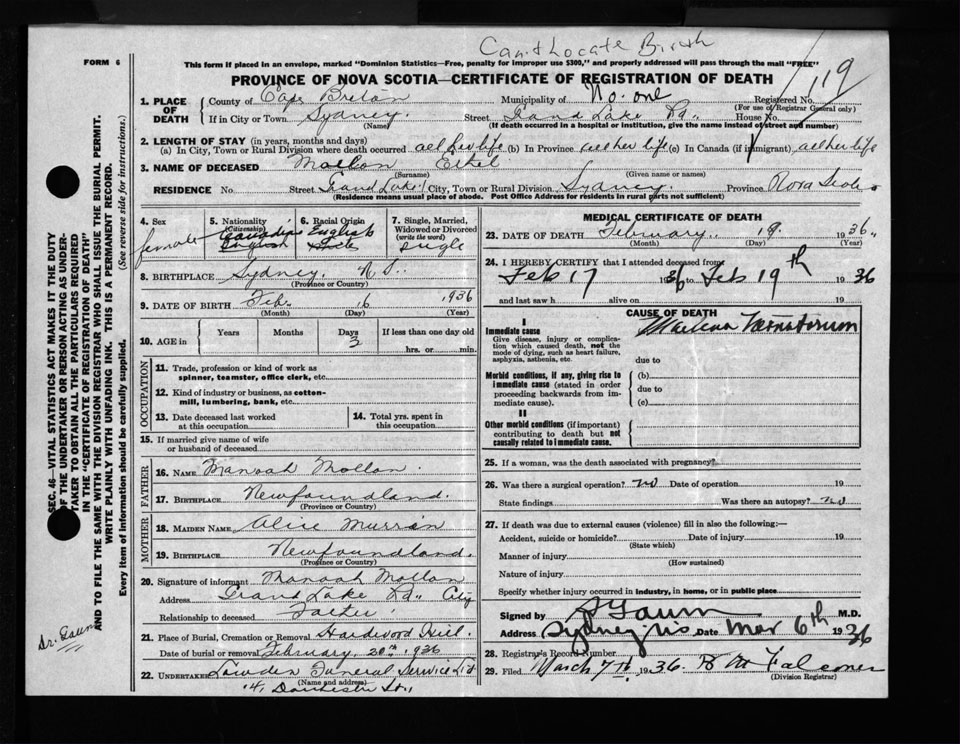 Can't locate Birth
FORM 6
This form if placed in an envelope, marked "Dominion Statistics—Free, penalty for improper use $300," and properly addressed will pass through the mail "FREE"
PROVINCE OF NOVA SCOTIA—CERTIFICATE OF REGISTRATION OF DEATH
119
1. PLACE OF DEATH
County of Cape Breton Municipality of No. one Registered No.
(For use of Registrar General only)
If in City or Town Sydney. Street Grand Lake Rd. House No.
(Name) (If death occurred in a hospital or institution, give the name instead of street and number)
2. LENGTH OF STAY (in years, months and days)
(a) In City, Town or Rural Division where death occurred all her life (b) In Province all her life (c) In Canada (if immigrant) all her life
3. NAME OF DECEASED Mollon Ethel
(Surname) (Given name or names)
RESIDENCE No Street Grand Lake City, Town or Rural Division Sydney Province Nova Scotia
(Residence means usual place of abode. Post Office Address for residents in rural parts not sufficient)
4. Sex female
5. Nationality (Citizenship) Canadian English
6. Racial Origin English
7. Single, Married, Widowed or Divorced (write the word) Single
8. BIRTHPLACE Sydney, N.S.
(Province or Country)
9. DATE OF BIRTH Feb. 16 1936
(Month) (Day) (Year)
10. AGE in Years Months Days 3 If less than one day old hrs. or min.
OCCUPATION
11. Trade, profession or kind of work as spinner, teamster, office clerk, etc.
12. Kind of industry or business, as cotton-mill, lumbering, bank, etc.
13. Date deceased last worked at this occupation
14. Total yrs. spent in this occupation
15. If married give name of wife or husband of deceased
FATHER
16. NAME Manoah Mollon.
17. BIRTHPLACE Newfoundland.
(Province or Country)
MOTHER
18. MAIDEN NAME Alice Murrin
19. BIRTHPLACE Newfoundland.
(Province or Country)
20. Signature of informant Manoah Mollon
Address Grand Lake Rd. City
Relationship to deceased Father.
21. Place of Burial, Cremation or Removal Hardwood Hill
Date of burial or removal February 20th 1936
22. UNDERTAKER Lowden Funeral Service Ltd
(Name and address)
14 Dorchester St.,
MEDICAL CERTIFICATE OF DEATH
23. DATE OF DEATH February 19 1936.
(Month) (Day) (Year)
24. I HEREBY CERTIFY that I attended deceased from:
Feb 17 1936 to Feb 19th 1936
and last saw h alive on 19
CAUSE OF DEATH
I
Immediate cause
Give disease, injury or complication which caused death, not the mode of dying, such as heart failure, asphyxia, asthenia, etc.
Maelena Neonatorum
due to
Morbid conditions, if any, giving rise to immediate cause (stated in order proceeding backwards from immediate cause).
(b)
due to
(c)
II
Other morbid conditions (if important) contributing to death but not causally related to immediate cause.
25. If a woman, was the death associated with pregnancy?
26. Was there a surgical operation? no Date of operation 19
State findings Was there an autopsy? no
27. If death was due to external causes (violence) fill in also the following:—
Accident, suicide or homicide? Date of injury 19
(State which)
Manner of injury
(How sustained)
Nature of injury
Specify whether injury occurred in industry, in home, or in public place
Signed by Gaum M.D.
Address Sydney NS Date Mar 6th 1936
28. Registrar's Record Number
29. Filed March 7th 1936. Falconer
(Division Registrar)
SEC. 46—VITAL STATISTICS ACT MAKES IT THE DUTY
OF THE UNDERTAKER OR PERSON ACTING AS UNDER-
TAKER TO OBTAIN ALL THE PARTICULARS REQUIRED
IN THE "CERTIFICATE OF REGISTRATION OF DEATH"
AND TO FILE THE SAME WITH THE DIVISION REGISTRAR WHO SHALL ISSUE THE BURIAL PERMIT.
WRITE PLAINLY WITH UNFADING INK. THIS IS A PERMANENT RECORD.
Every item of information should be carefully supplied. (See reverse side for instructions.)
Dr. Gaum